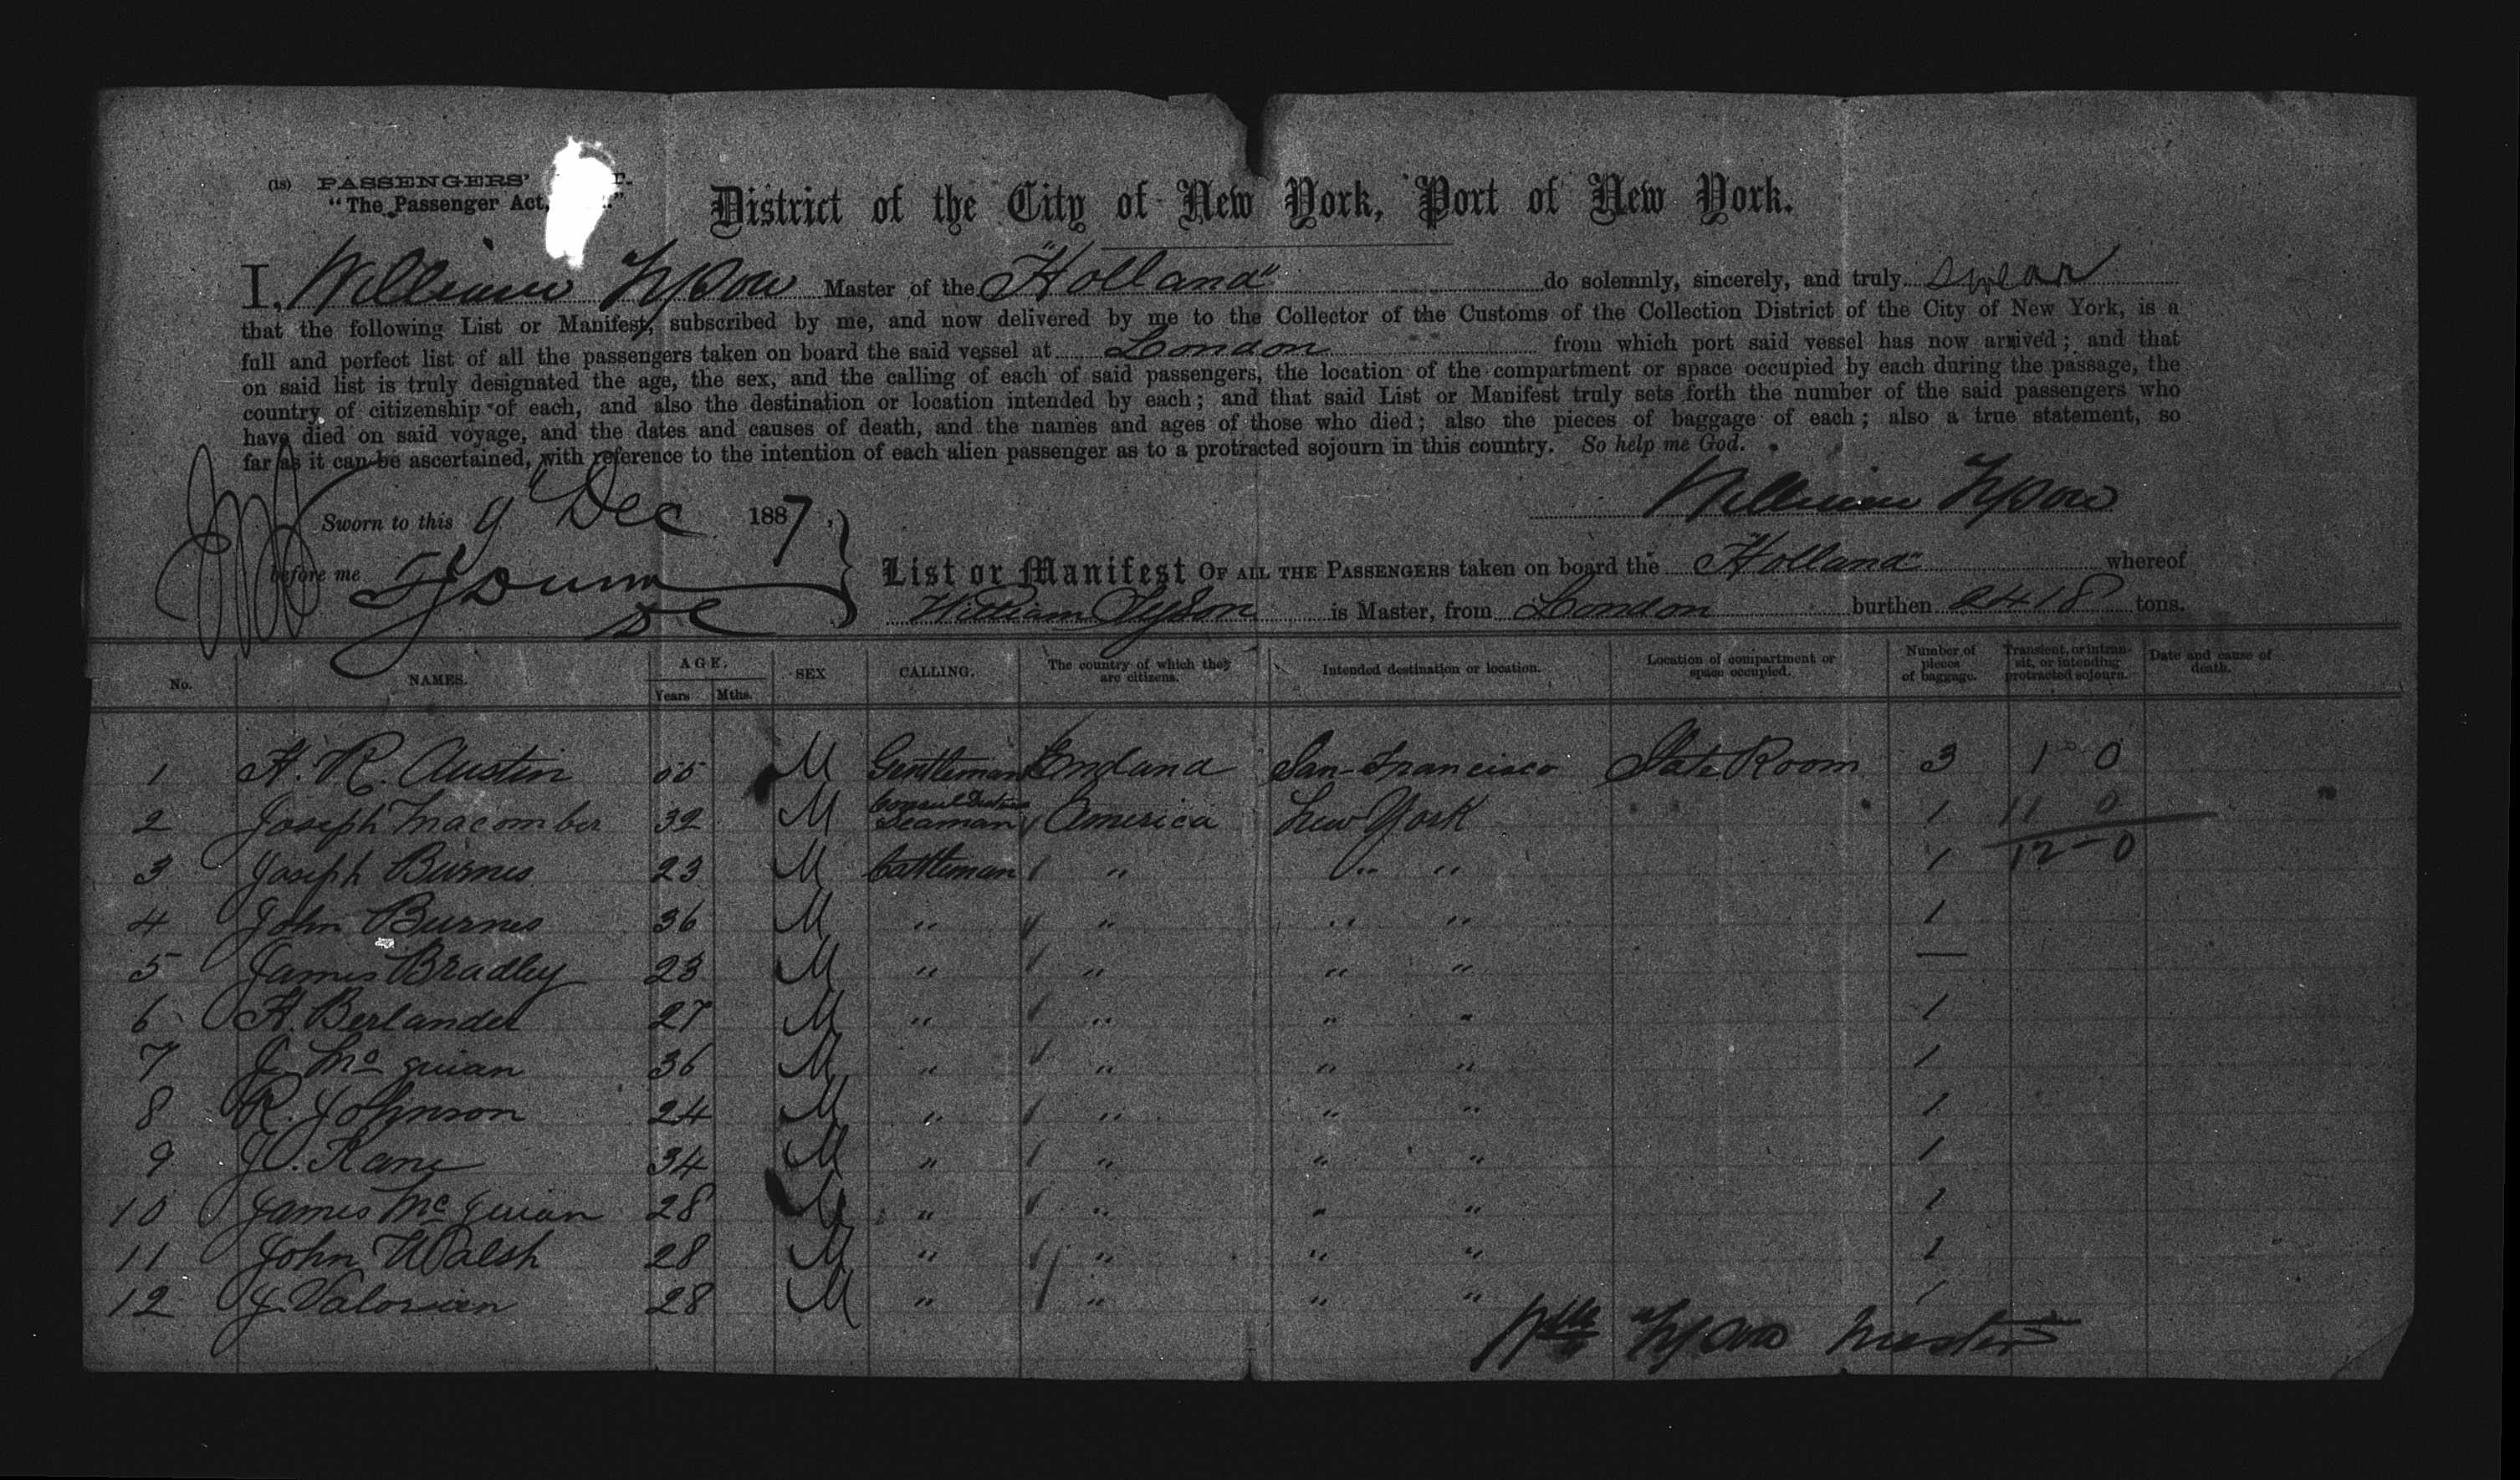 (18) PASSENGERS'
"The Passenger Act,
District of the City of New York, Port of New York.
I, William Tyson Master of the "Holland" do solemnly, sincerely, and truly swear
that the following List or Manifest, subscribed by me, and now delivered by me to the Collector of the Customs of the Collection District of the City of New York, is a
full and perfect list of all the passengers taken on board the said vessel at London from which port said vessel has now arrived; and that
on said list is truly designated the age, the sex, and the calling of each of said passengers, the location of the compartment or space occupied by each during the passage, the
country of citizenship of each, and also the destination or location intended by each; and that said List or Manifest truly sets forth the number of the said passengers who
have died on said voyage, and the dates and causes of death, and the names and ages of those who died; also the pieces of baggage of each; also a true statement, so
far as it can be ascertained, with reference to the intention of each alien passenger as to a protracted sojourn in this country. So help me God.
William Tyson
Sworn to this 9 Dec 1887,
before me
DC
List or Manifest OF ALL THE PASSENGERS taken on board the "Holland" whereof
William Tyson is Master, from London burthen 2418 tons.
No. NAMES. AGE. Years Mths. SEX CALLING. The country of which they are citizens. Intended destination or location. Location of compartment or space occupied. Number of pieces of baggage. Transient, or intransit, or intending protracted sojourn. Date and cause of death.
1 H. R. Austin 55 M Gentleman England San-Francisco State Room 3 1-0
2 Joseph Macomber 32 M Consul Seaman America New York 1 11 0
3 Joseph Burnes 23 M Cattleman " " " 1 12-0
4 John Burnes 36 M " " " " 1
5 James Bradley 23 M " " " " —
6 H. Berlander 27 M " " " " 1
7 J. Mc guian 36 M " " " " 1
8 R. Johnson 24 M " " " " 1
9 J. Kane 34 M " " " " 1
10 James Mc guian 28 M " " " " 1
11 John Walsh 28 M " " " " 1
12 J. Valorian 28 M " " " " 1
Wm Tyson Master